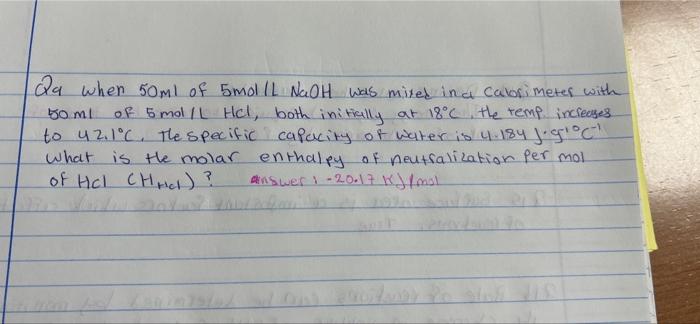 Q9 when 50ml of 5mol/L NaOH was mixed in a calorimeter with
50ml of 5mol/L Hcl, both initially at 18°C, the temp increases
to 42.1°C. The specific capacity of water is 4.184 J·g⁻¹°C⁻¹
what is the molar enthalpy of neutralization per mol
of Hcl (H Hcl)? answer: -20.17 KJ/mol